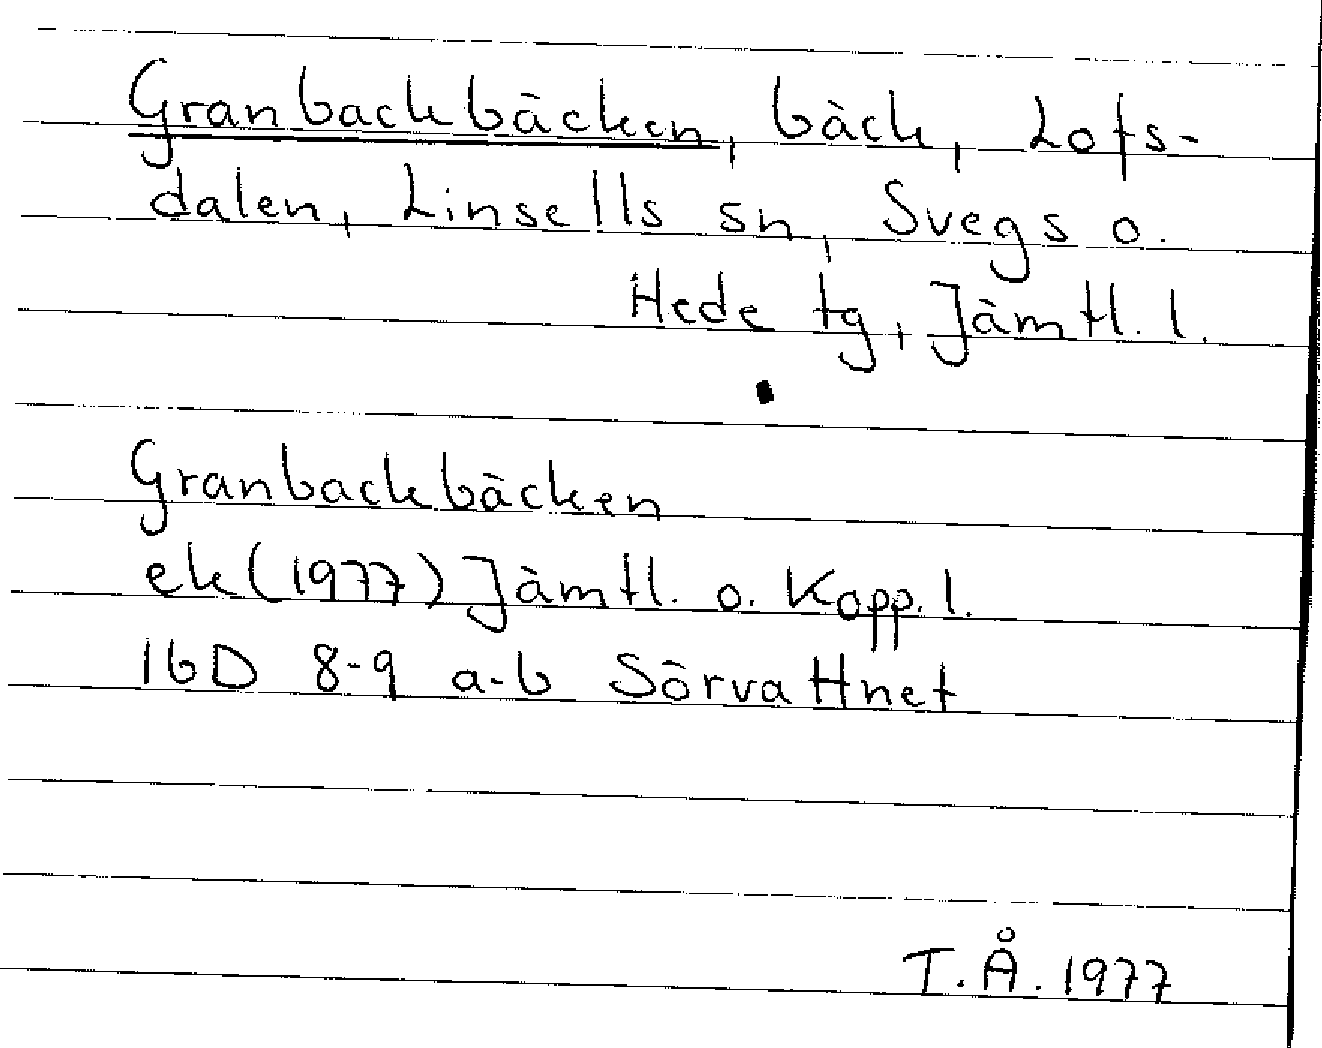 Granbackbäcken, bäck, Lofs-
dalen, Linsells sn, Svegs o.
Hede tg, Jämtl. l.
Granbackbäcken
ek (1977) Jämtl. o. Kopp. l.
16D 8-9 a-b Sörvattnet
T. Å. 1977